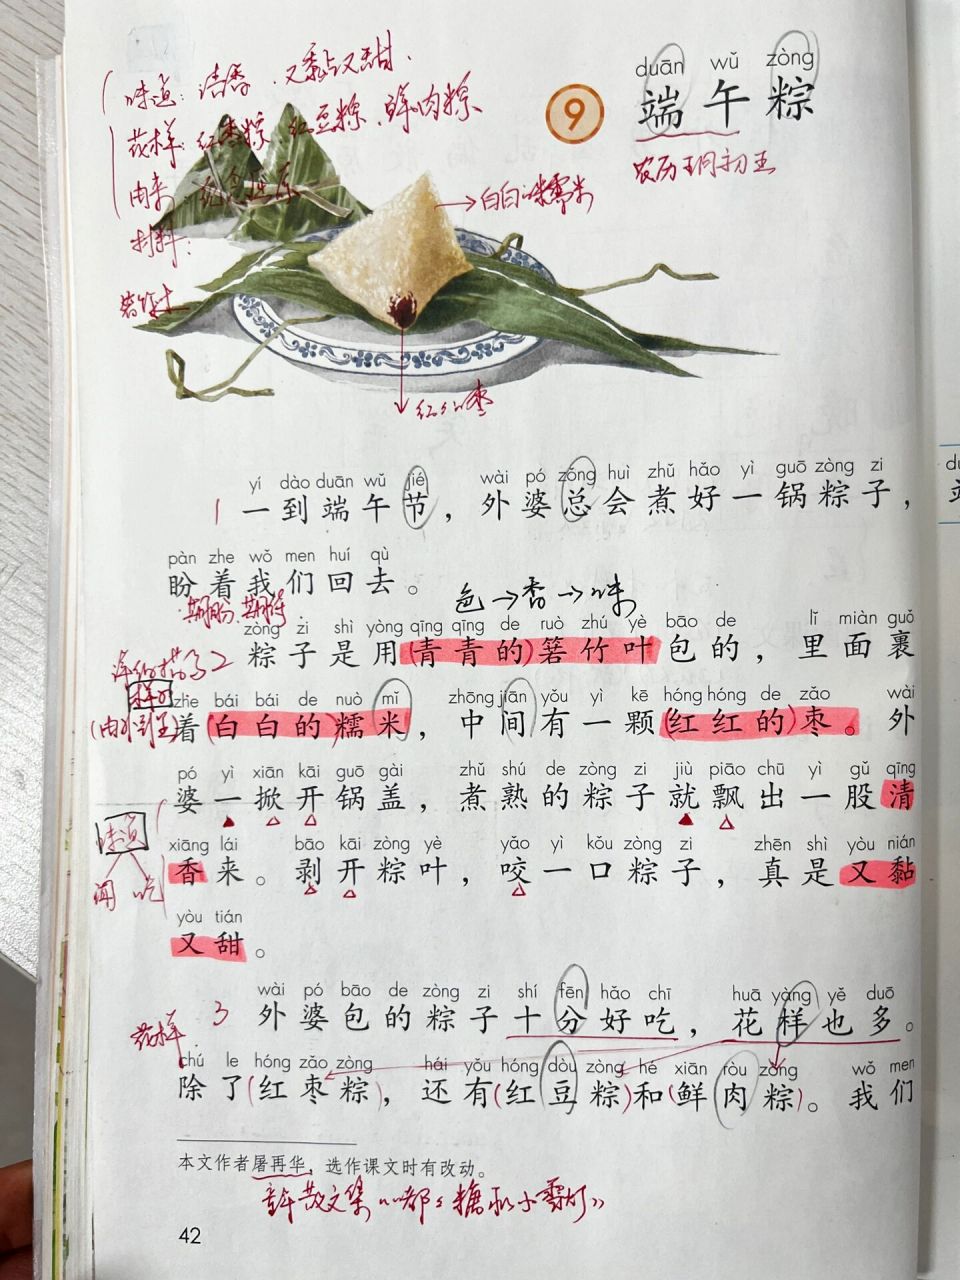 味道：清香、又黏又甜、
花样：红枣粽、红豆粽、鲜肉粽
由来：纪念屈原
材料：
箬竹叶
白白 糯米
红红 枣
9
duān wǔ zòng
端午粽
农历五月初五
yí dào duān wǔ jié wài pó zǒng huì zhǔ hǎo yì guō zòng zi
1 一到端午节，外婆总会煮好一锅粽子，
pàn zhe wǒ men huí qù
盼着我们回去。
期盼、期待
色→香→味
zòng zi shì yòng qīng qīng de ruò zhú yè bāo de lǐ miàn guǒ
2 粽子是用(青青的)箬竹叶包的，里面裹
样子
(由外到里)
zhe bái bái de nuò mǐ zhōng jiān yǒu yì kē hóng hóng de zǎo wài
着(白白的)糯米，中间有一颗(红红的)枣。外
pó yì xiān kāi guō gài zhǔ shú de zòng zi jiù piāo chū yì gǔ qīng
婆一掀开锅盖，煮熟的粽子就飘出一股清
味道
闻 吃
xiāng lái bāo kāi zòng yè yǎo yì kǒu zòng zi zhēn shì yòu nián
香来。剥开粽叶，咬一口粽子，真是又黏
yòu tián
又甜。
wài pó bāo de zòng zi shí fēn hǎo chī huā yàng yě duō
3 外婆包的粽子十分好吃，花样也多。
花样
chú le hóng zǎo zòng hái yǒu hóng dòu zòng hé xiān ròu zòng wǒ men
除了(红枣粽)，还有(红豆粽)和(鲜肉粽)。我们
本文作者屠再华，选作课文时有改动。
42
du